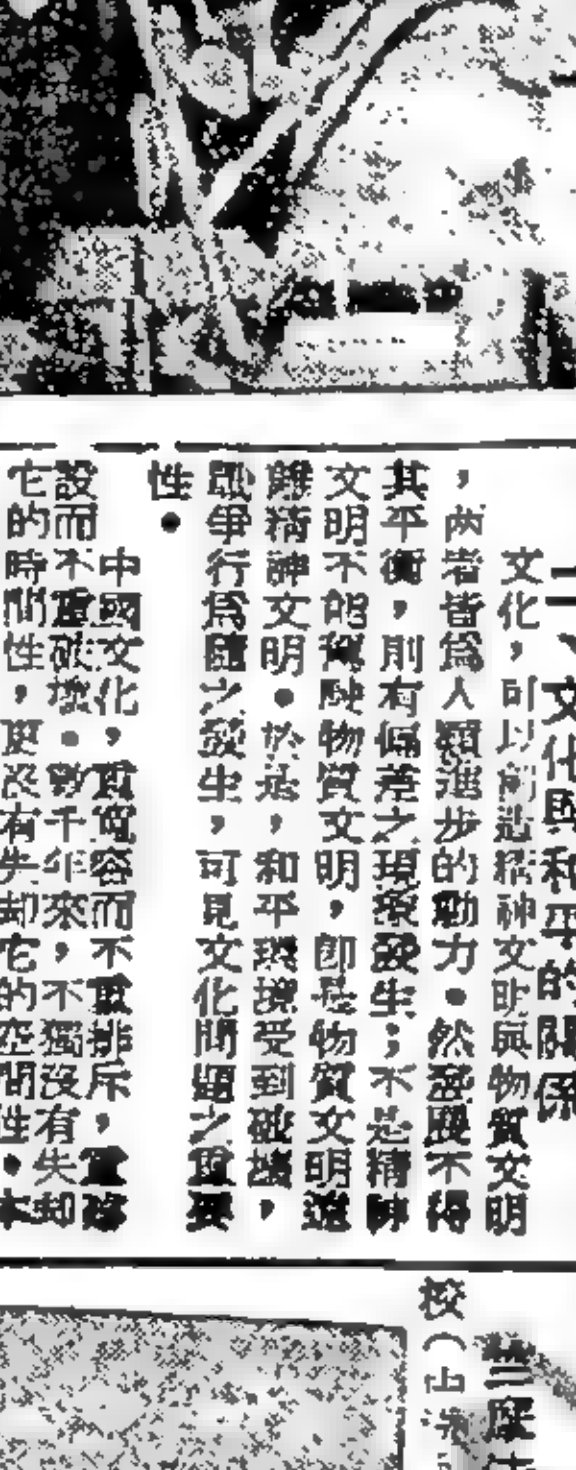 二、文化與和平的關係
文化，可以創造精神文明與物質文明
，両者皆為人類進步的動力。然發展不得
其平衡，則有偏差之現象發生；不是精神
文明不能駕馭物質文明，即是物質文明遺
精神文明。於是，和平環境受到破壞，
爭行為隨之發生，可見文化問題之重要
性。
中國文化，重寬容而不重排斥，重
設而不重破壞。數千年來，不獨沒有失却
它的時間性，更沒有失却它的空間性。
校（山